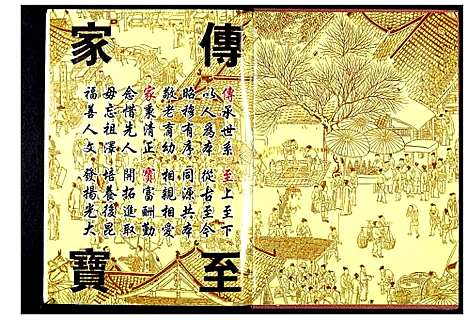 傳家至寶
傳承世系 至上至下
以人為本 從古至今
昭穆有序 同源共本
敬老育幼 相親相愛
家秉清正 寶富酬勤
念惜先人 開拓進取
毋忘祖澤 培養後昆
福善人文 發揚光大